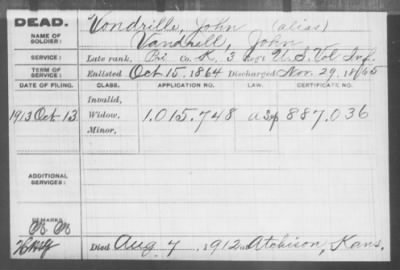 DEAD.
Vondrille, John (alias)
NAME OF SOLDIER: Vandrill, John
SERVICE: Late rank, Pri Co. K, 3 Reg't U.S. Vol Inf.
TERM OF SERVICE: Enlisted Oct. 15, 1864 Discharged Nov. 29, 1865
DATE OF FILING. CLASS. APPLICATION NO. LAW. CERTIFICATE NO.
Invalid,
1913 Oct 13 Widow, 1.015.748 887.036
Minor,
ADDITIONAL SERVICES:
REMARKS
Died Aug 7, 1912 Atchison, Kans.